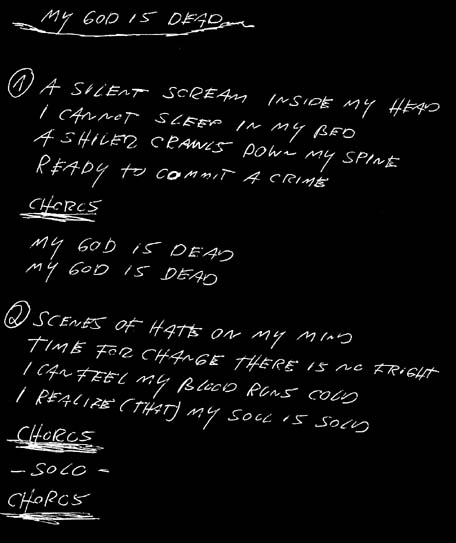 MY GOD IS DEAD
① A SILENT SCREAM INSIDE MY HEAD
I CANNOT SLEEP IN MY BED
A SHIVER CRAWLS DOWN MY SPINE
READY TO COMMIT A CRIME
CHORUS
MY GOD IS DEAD
MY GOD IS DEAD
② SCENES OF HATE ON MY MIND
TIME FOR CHANGE THERE IS NO FRIGHT
I CAN FEEL MY BLOOD RUNS COLD
I REALIZE (THAT) MY SOUL IS SOLD
CHORUS
- SOLO -
CHORUS